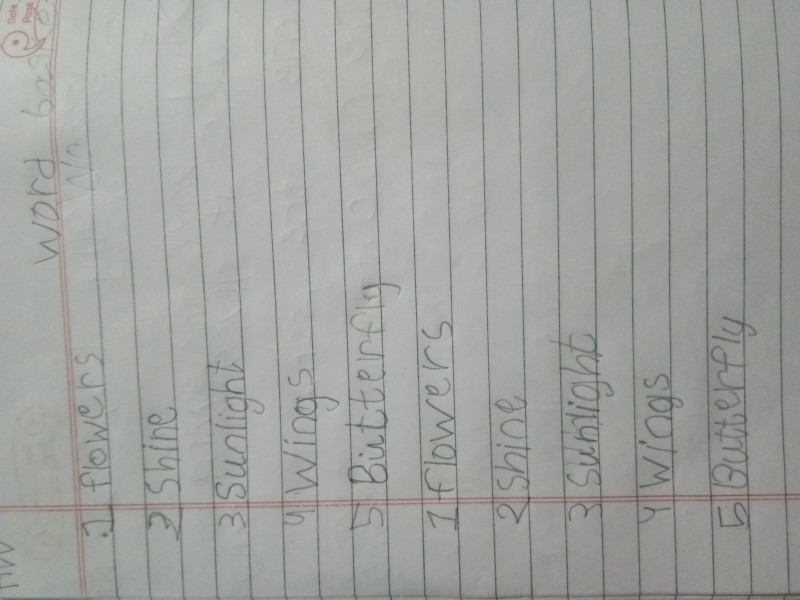 HW
Date
Page
word
1 flowers
2 Shine
3 Sunlight
4 Wings
5 Butterfly
1 flowers
2 Shine
3 Sunlight
4 Wings
5 Butterfly